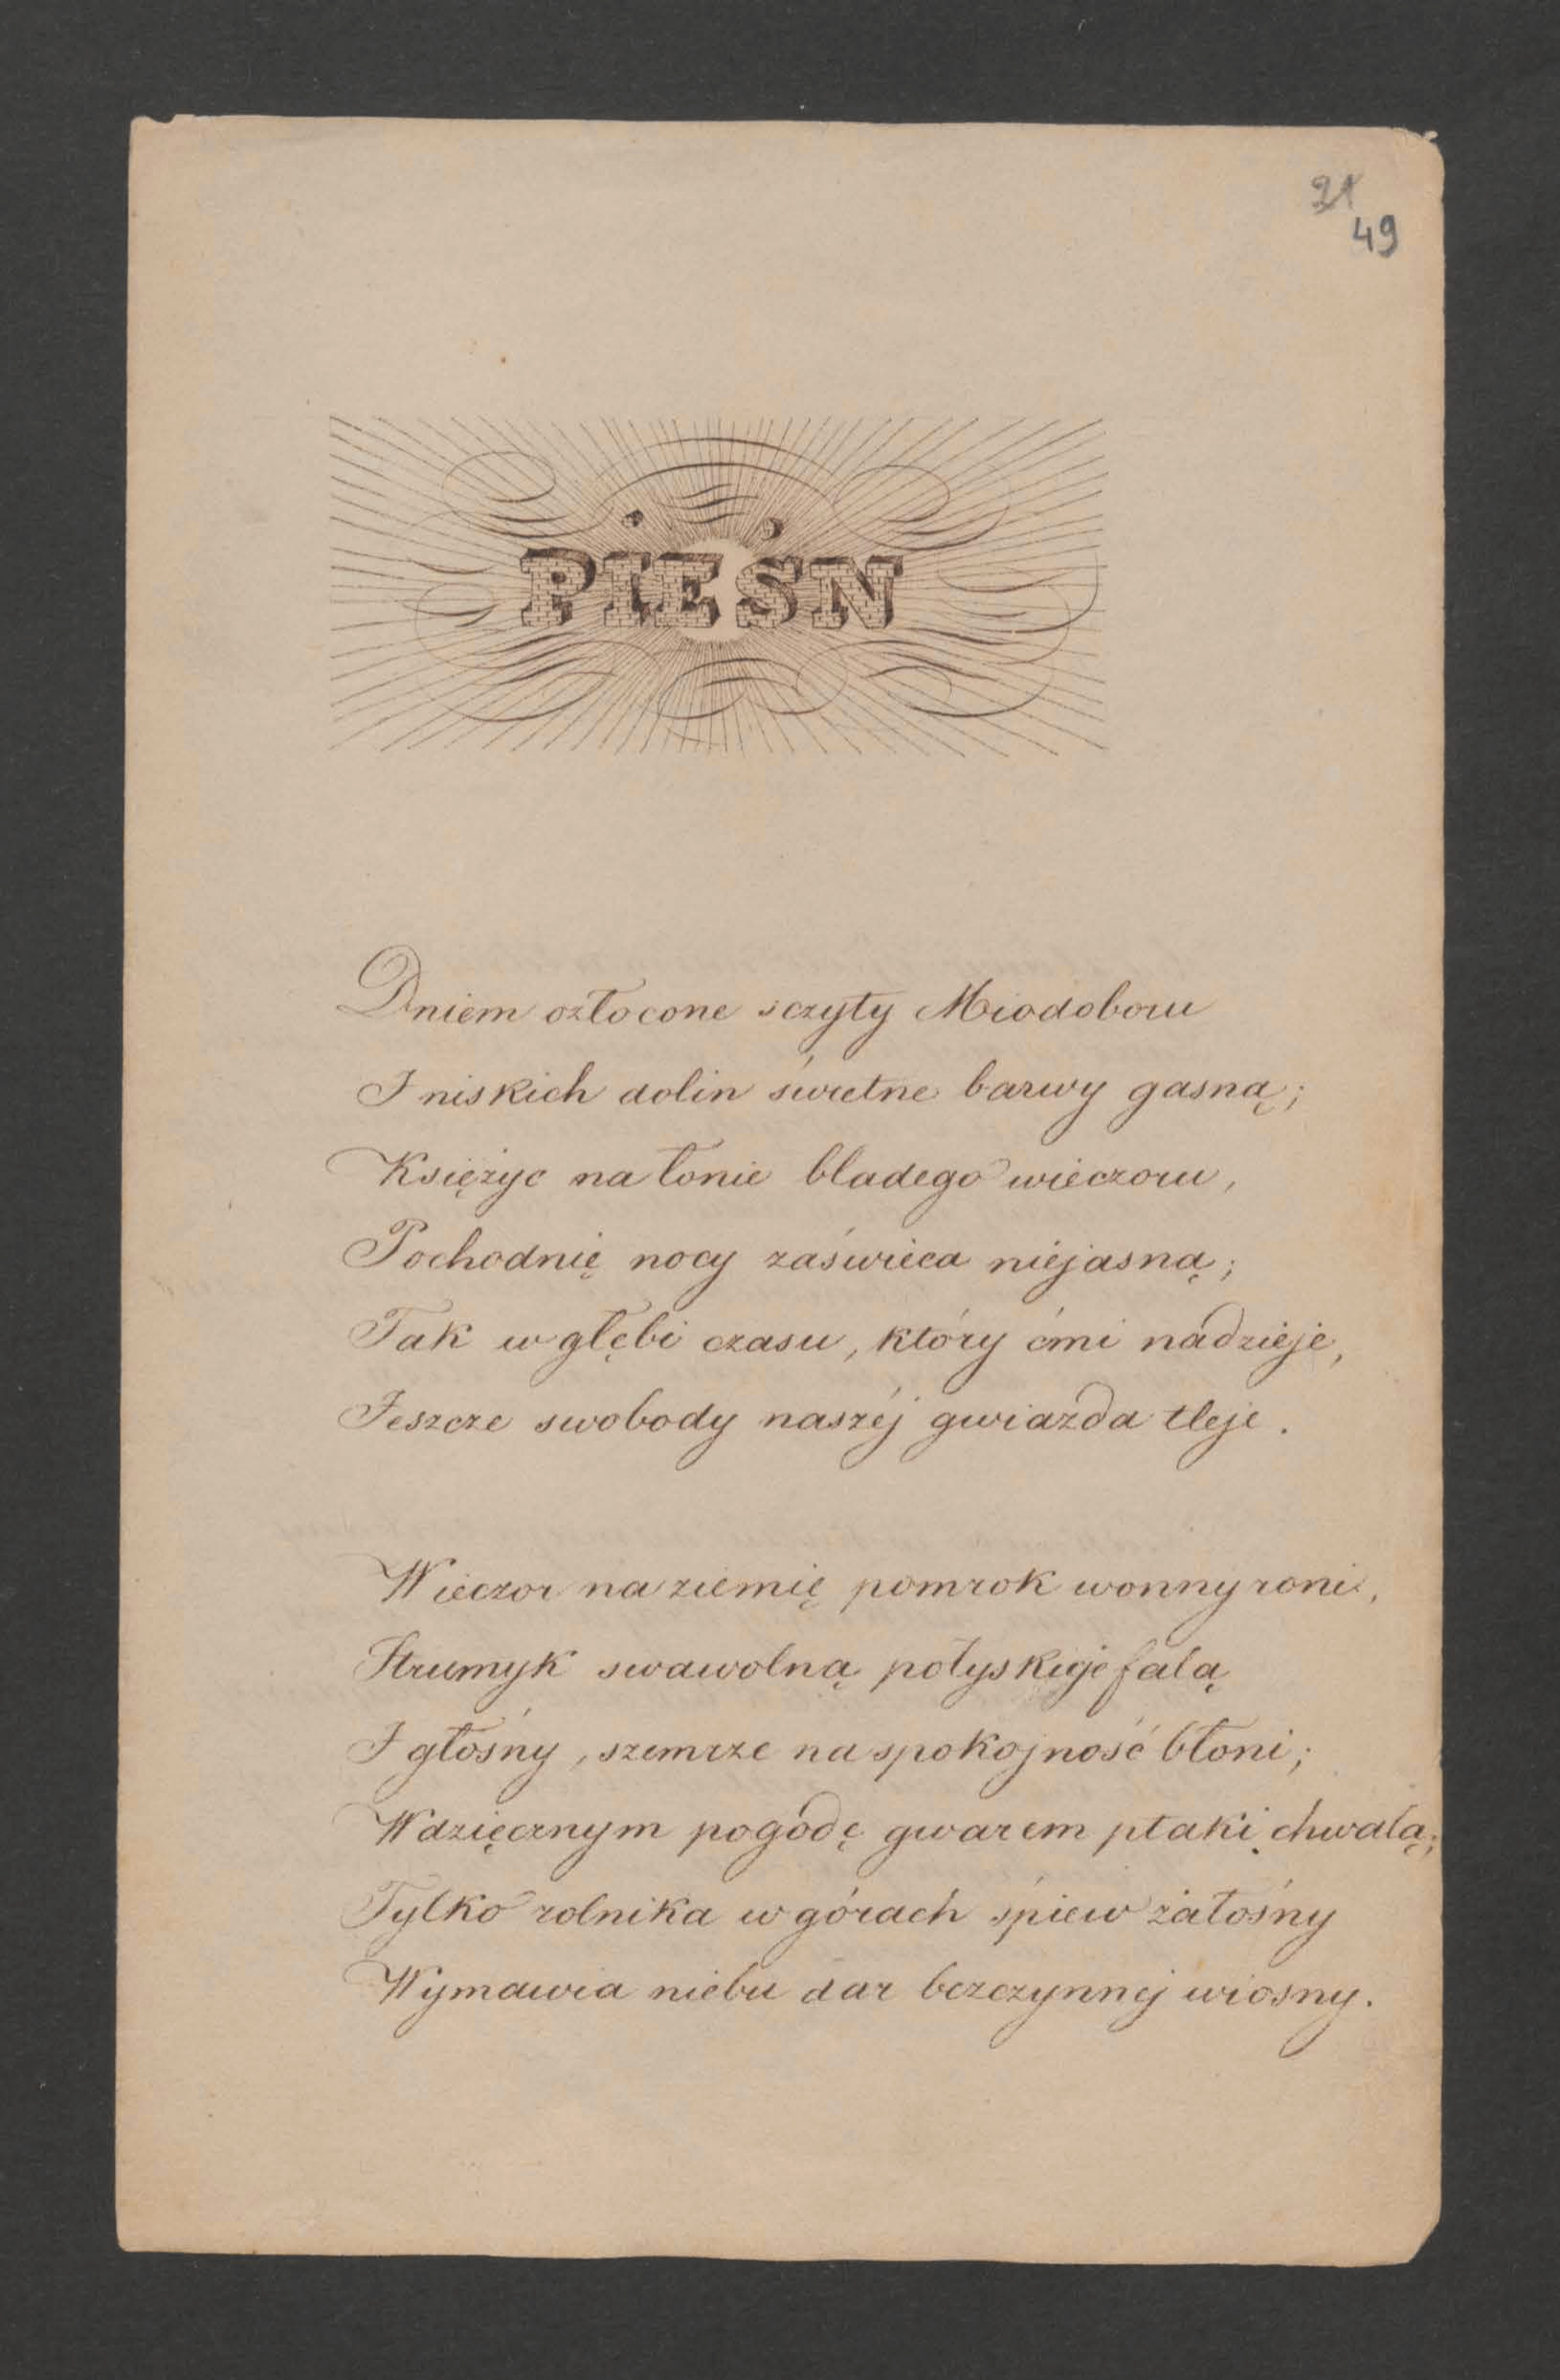 21
49
PIEŚN
Dniem ozłocone sczyty Miodoboru
I niskich dolin świetne barwy gasną;
Księżyc na łonie bladego wieczoru,
Pochodnię nocy zaświeca niejasną;
Tak w głębi czasu, który ćmi nadzieje,
Jeszcze swobody naszéj gwiazda tleje.
Wieczor na ziemię pomrok wonny roni,
Strumyk swawolną połyskuje falą
I głośny, szemrze na spokojność błoni;
Wdzięcznym pogodę gwarem ptaki chwalą;
Tylko rolnika w górach śpiew żałośny
Wymawia niebu dar bezczynnej wiosny.